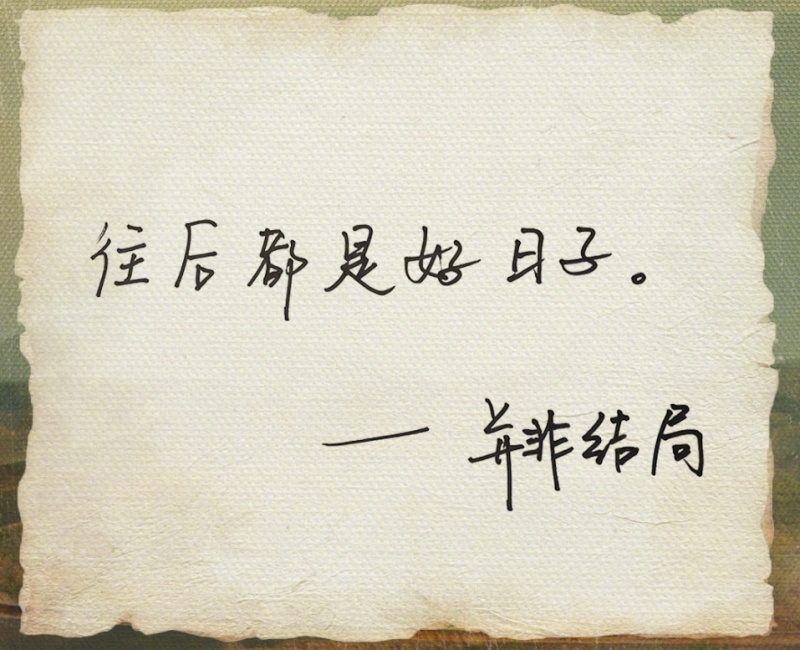 往后都是好日子。
— 并非结局